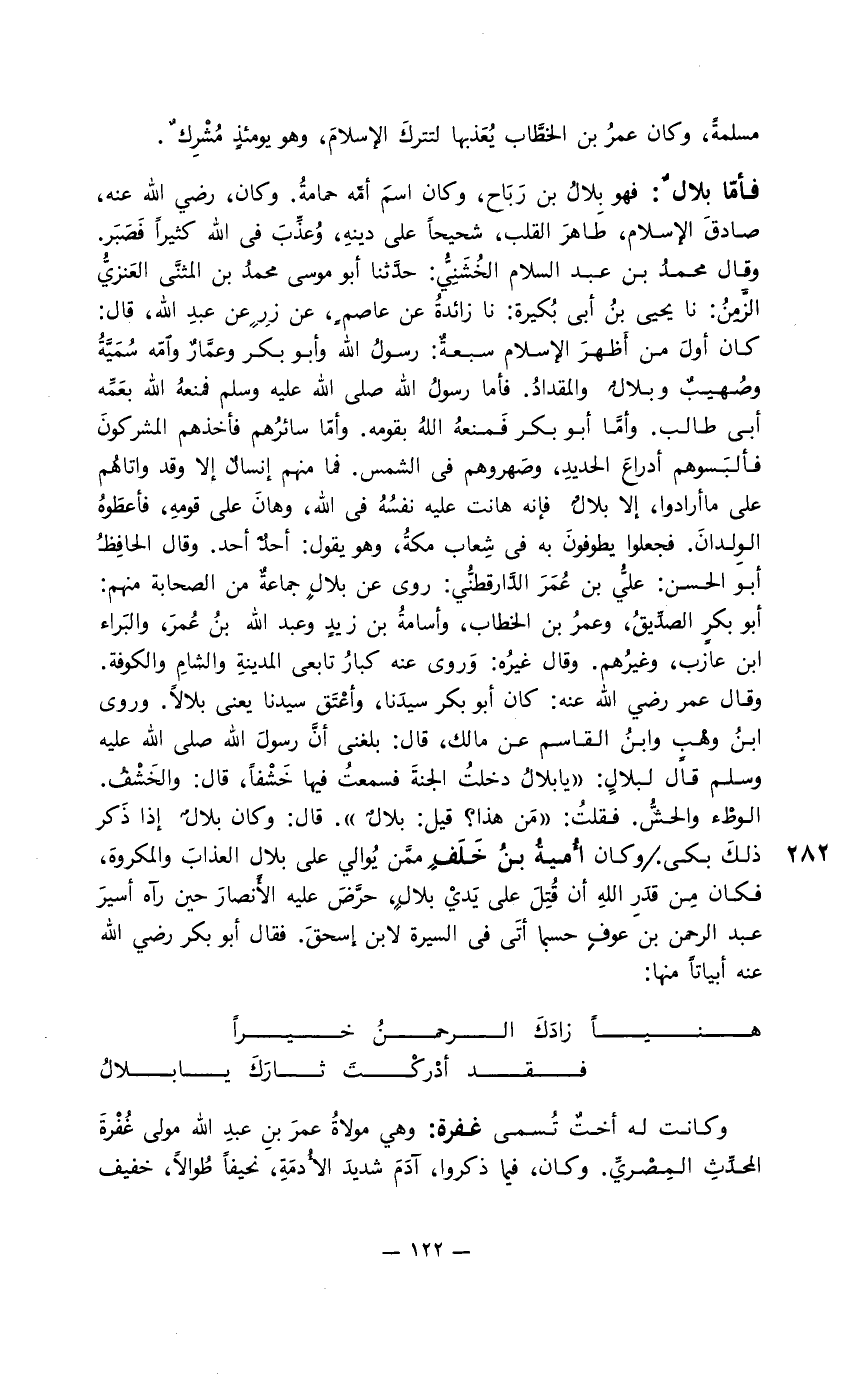 مسلمةً، وكان عمرُ بن الخطَّاب يُعَذبها لتتركَ الإسلامَ، وهو يومئذٍ مُشْرِكٌ.
فـأمّا بلالٌ: فهو بِلالُ بن رَبَاح، وكان اسمَ أمّه حمامةُ. وكان، رضي الله عنه،
صـادقَ الإسـلام، طـاهرَ القلب، شحيحاً على دينهِ، وُعذِّبَ فى الله كثيراً فَصَبَر.
وقـال محمـدُ بـن عبـد السلام الخُشَنِيُّ: حدَّثنا أبو موسى محمدُ بن المثنَّى العَنزيُّ
الزَّمِنُ: نا يحيى بنُ أبى بُكيرة: نا زائدةُ عن عاصمٍ، عن زرٍ عن عبدِ الله، قال:
كـان أولَ مـن أظهـرَ الإسـلام سـبعـةٌ: رسـولُ الله وأبـو بـكـر وعمَّارٌ وأمّه سُمَيَّةُ
وصُهـيـبٌ وبـلالٌ والمقدادُ. فأما رسولُ الله صلى الله عليه وسلم فمنعهُ الله بعَمِّه
أبـى طـالـب. وأمَّا أبـو بـكـر فَمـنـعهُ اللهُ بقومه. وأمّا سائرُهم فأخذهم المشركونَ
فـألـبَسوهم أدراعَ الحديدِ، وصَهروهم فى الشمس. فما منهم إنسانٌ إلا وقد واتاهُم
على ماأرادوا، إلا بلالٌ فإنه هانت عليه نفسُهُ فى الله، وهانَ على قومهِ، فأعطَوهُ
الـوِلـدانَ. فـجعلوا يطوفونَ به فى شِعاب مكةُ، وهو يقول: أحدٌ أحد. وقال الحافِظُ
أبـو الحـسـن: عليُّ بن عُمَرَ الدَّارقطنُّي: روى عن بلالٍ جماعةٌ من الصحابة منهم:
أبو بكرٍ الصدّيقُ، وعمرُ بن الخطاب، وأسامةُ بن زيدٍ وعبد الله بنُ عُمرَ، والبَراء
ابن عازب، وغيرُهم. وقال غيرُه: وَروى عنه كبارُ تابعى المدينةِ والشامِ والكوفة.
وقـال عمر رضي الله عنه: كان أبو بكر سيدَنا، وأعْتَق سيدنا يعنى بلالاً. وروى
ابـنُ وهْبٍ وابنُ القـاسـم عـن مالك، قال: بلغنى أنَّ رسولَ الله صلى الله عليه
وسـلـم قـال لـبـلالٍ: «يابلالُ دخلتُ الجنةَ فسمعتُ فيها خَشْفاً، قال: والخَشْفُ.
الـوطْء والحـسُّ. فـقـلتُ: «مَن هذا؟ قيل: بلالٌ ». قال: وكان بلالٌ إذا ذَكر
ذلـكَ بـكـى./ وكـان أميةُ بـنُ خَلَفٍ ممَّن يُوالي على بلال العذابَ والمكروة، ٢٨٢
فـكـان مِـن قدَرِ اللهِ أن قُتِلَ على يَديْ بلالٍ، حرَّضَ عليه الأنصارَ حين رآه أسيرَ
عبـد الرحمن بن عوفٍ حسبما أتَى فى السيرة لابن إسحقَ. فقال أبو بكر رضي الله
عنه أبياتاً منها:
هـنـيـئـاً زادَكَ الـرحمـنُ خـيـراً
فـقـد أدْركْـتَ ثـارَكَ يـا بـلالُ
وكـانـت لـه أخـتٌ تُـسـمـى غـفـرة: وهي مولاةُ عمرَ بنِ عبدِ الله مولى غُفْرةَ
المحدِّثِ الـمِصْريِّ. وكـان، فيما ذكروا، آدَمَ شديدَ الأدمَةِ، نحيفاً طُوالاً، خفيف
— ١٢٢ —